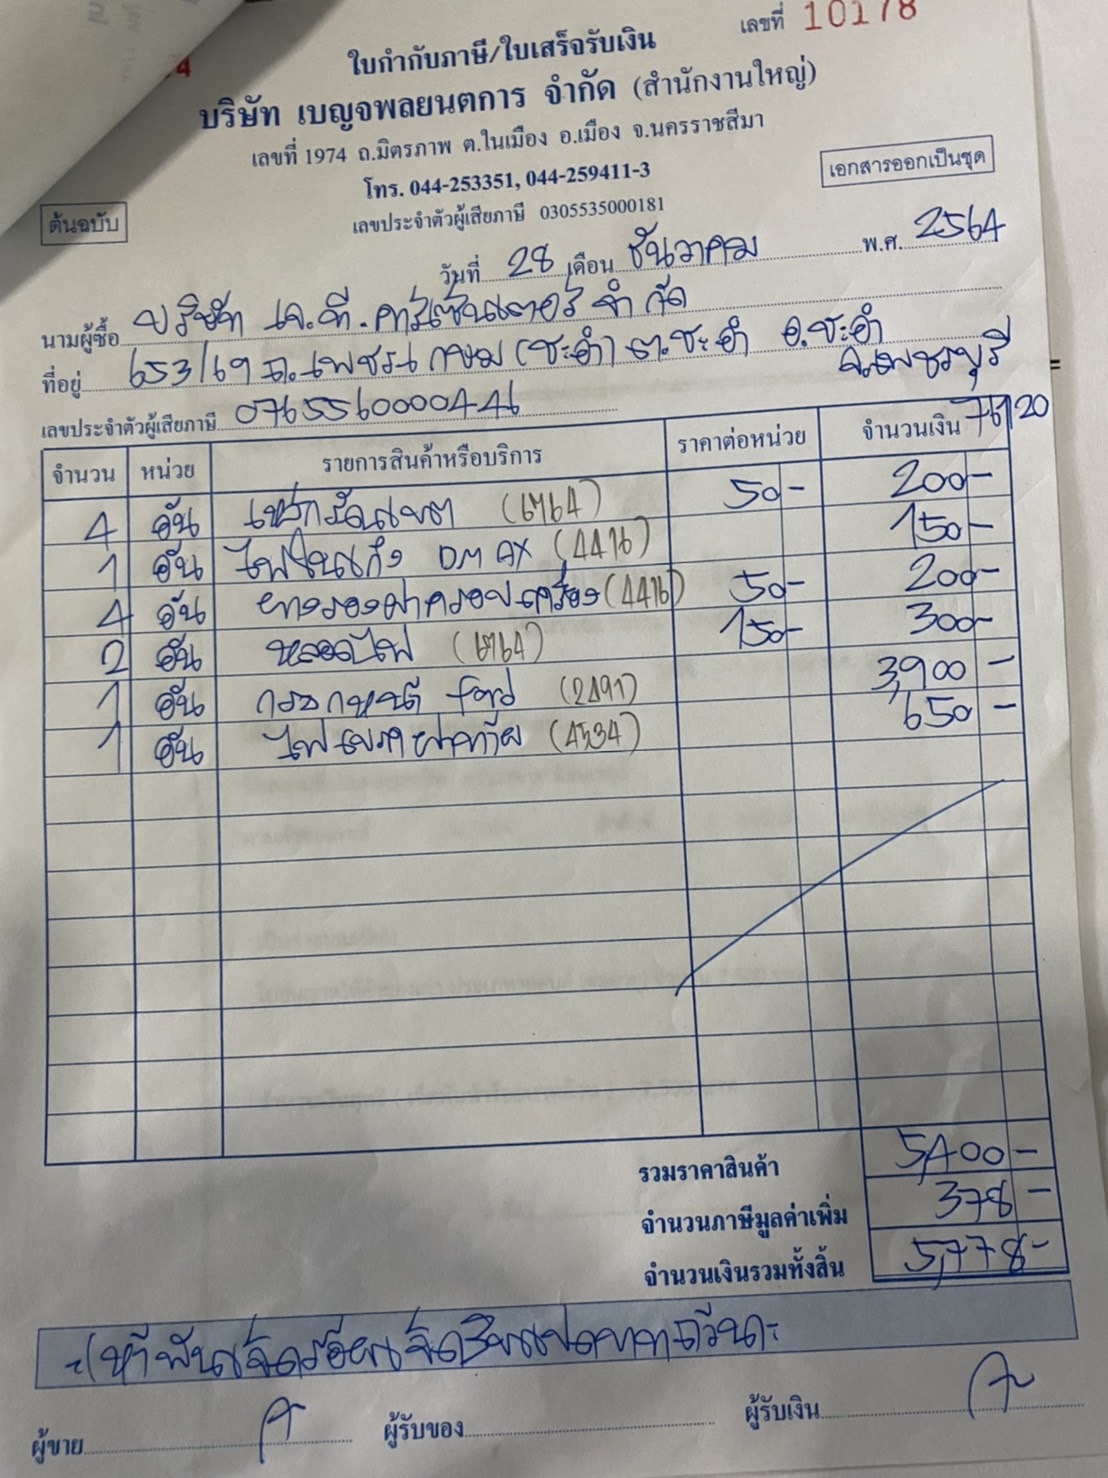 เลขที่ 10178
ใบกำกับภาษี/ใบเสร็จรับเงิน
บริษัท เบญจพลยนตการ จำกัด (สำนักงานใหญ่)
เลขที่ 1974 ถ.มิตรภาพ ต.ในเมือง อ.เมือง จ.นครราชสีมา
โทร. 044-253351, 044-259411-3
เอกสารออกเป็นชุด
ต้นฉบับ
เลขประจำตัวผู้เสียภาษี 0305535000181
วันที่ 28 เดือน ธันวาคม พ.ศ. 2564
นามผู้ซื้อ บริษัท เจ.ที.คาร์เซ็นเตอร์ จำกัด
ที่อยู่ 653/69 ถ.เพชรเกษม (ชะอำ) ต.ชะอำ อ.ชะอำ
จ.เพชรบุรี
เลขประจำตัวผู้เสียภาษี 0765560000446
76120
จำนวน หน่วย รายการสินค้าหรือบริการ ราคาต่อหน่วย จำนวนเงิน
4 อัน เหล็กรัด (6764) 50- 200-
1 อัน ไฟในเก๋ง DMAX (4476) 150-
4 อัน ยางรองฝาครอบเครื่อง (4476) 50- 200-
2 อัน หลอดไฟ (6764) 150- 300-
1 อัน Ford (2491) 3,900 -
1 อัน ไฟเบรคฝาท้าย (4534) 650 -
รวมราคาสินค้า 5,400-
จำนวนภาษีมูลค่าเพิ่ม 378 -
จำนวนเงินรวมทั้งสิ้น 5,778-
-(ห้าพันเจ็ดร้อยเจ็ดสิบแปดบาทถ้วน)-
ผู้ขาย ผู้รับของ ผู้รับเงิน